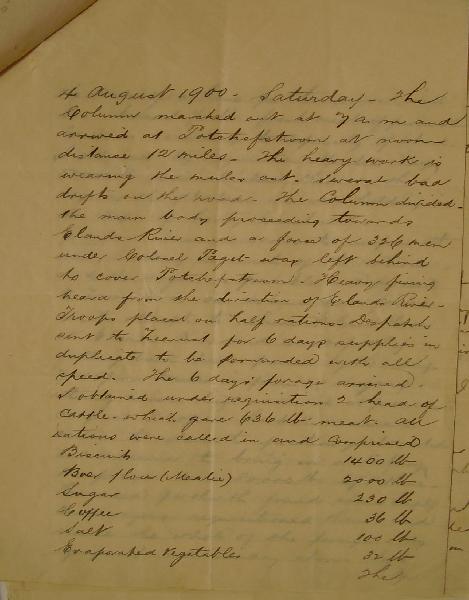 4 August 1900 - Saturday - The
Column marched out at 7 a.m and
arrived at Potchefstroom at noon
distance 12 miles - The heavy work is
wearing the mules out. Several bad
drifts on the road - The Column divided -
the main body proceeding towards
Elands River and a force of 326 men
under Colonel Paget was left behind
to cover Potchefstroom - Heavy firing
heard from the direction of Elands River -
Troops placed on half rations - Despatch
sent to Zeerust for 6 days supplies in
duplicate to be forwarded with all
speed. The 6 days' forage arrived.
I obtained under requisition 2 head of
cattle - which gave 636 lb meat. All
rations were called in and comprised
Biscuits 1400 lb
Boer flour (Mealie) 2000 lb
Sugar 230 lb
Coffee 36 lb
Salt 100 lb
Evaporated Vegetables 32 lb
The